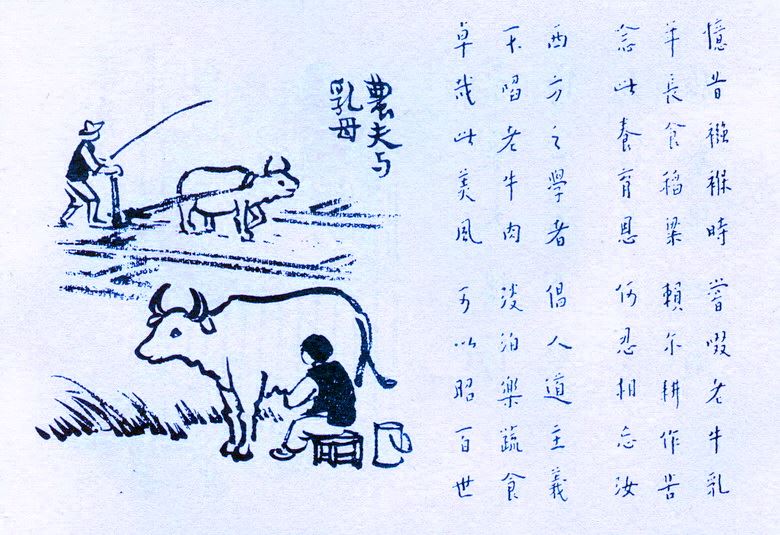 憶昔襁褓時 嘗啜老牛乳
年長食稻粱 賴尔耕作苦
念此養育恩 何忍相忘汝
西方之學者 倡人道主義
不啗老牛肉 淡泊樂蔬食
卓哉此美風 可以昭百世
農夫与
乳母